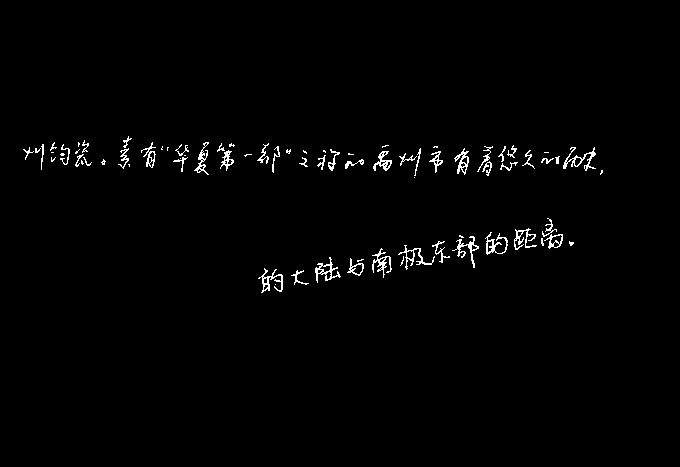 州钧瓷。素有“华夏第一都”之称的禹州市有着悠久的历史,
的大陆与南极东部的距离.